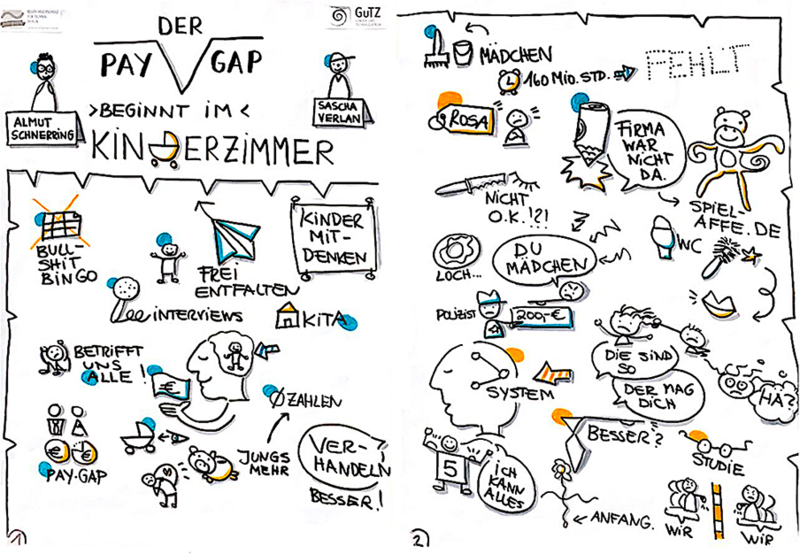 GUTZ
DER
PAY GAP
>BEGINNT IM<
KINDERZIMMER
ALMUT
SCHNERRING
SASCHA
VERLAN
BULL-
SHIT
BINGO
FREI
ENTFALTEN
KINDER
MIT-
DENKEN
INTERVIEWS
KITA
BETRIFFT
UNS
ALLE!
€
Ø ZAHLEN
€ €
PAY-GAP
JUNGS
MEHR
VER-
HANDELN
BESSER!
1
MÄDCHEN
160 MIO. STD.
FEHLT
ROSA
FIRMA
WAR
NICHT
DA.
SPIEL-
AFFE.DE
NICHT
O.K.!?!
LOCH...
DU
MÄDCHEN
WC
POLIZIST
200,-€
SYSTEM
DIE SIND
SO
DER MAG
DICH
HÄ?
BESSER?
STUDIE
5
ICH
KANN
ALLES
ANFANG.
WIR
WIR
2